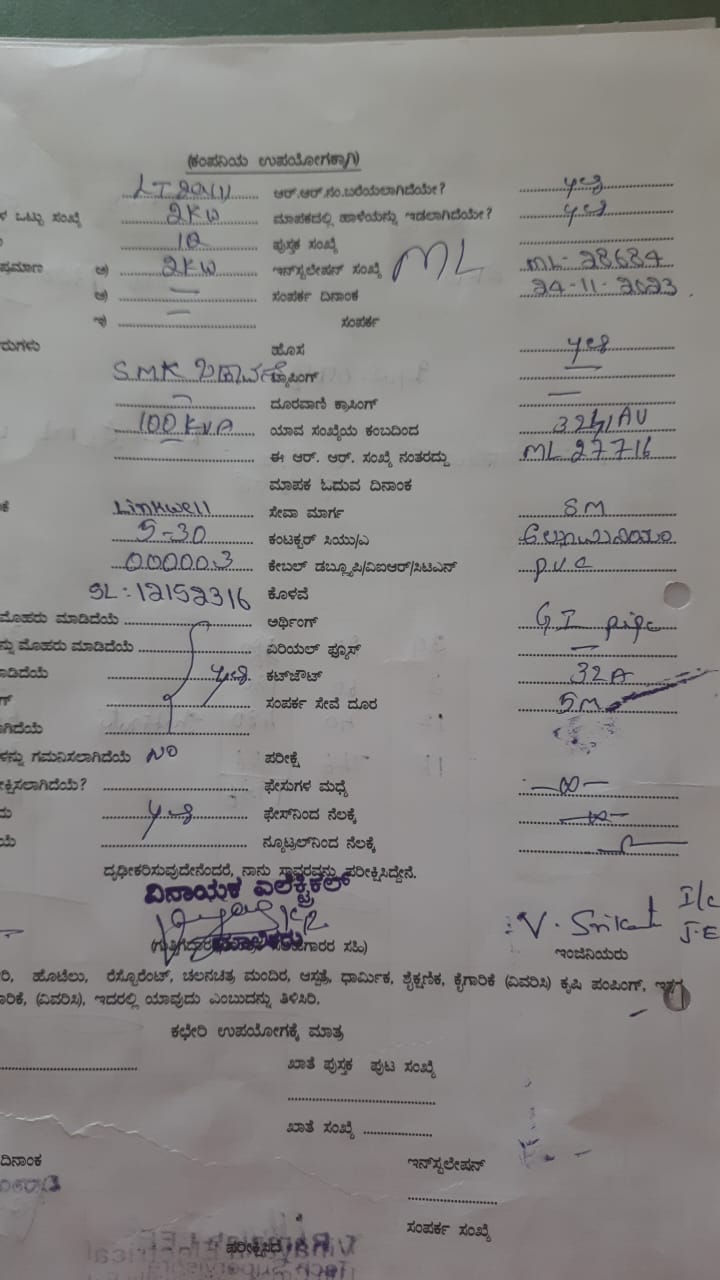 (ಕಂಪನಿಯ ಉಪಯೋಗಕ್ಕಾಗಿ)
ಆರ್.ಆರ್.ನಂ.ಬರೆಯಲಾಗಿದೆಯೇ? yes
ಳ ಒಟ್ಟು ಸಂಖ್ಯೆ 2KW ಮಾಪಕದಲ್ಲಿ ಹಾಳೆಯನ್ನು ಇಡಲಾಗಿದೆಯೇ? yes
ಪುಸ್ತಕ ಸಂಖ್ಯೆ
ಪ್ರಮಾಣ ಅ) 2KW ಇನ್‌ಸ್ಟಲೇಷನ್ ಸಂಖ್ಯೆ ML ML-28684
ಆ) — ಸಂಪರ್ಕ ದಿನಾಂಕ 24-11-2023
ಇ) — ಸಂಪರ್ಕ
ರುಗಳು ಹೊಸ yes
SMK ಟ್ಯಾಪಿಂಗ್ —
ದೂರವಾಣಿ ಕ್ರಾಸಿಂಗ್ —
100 KVA ಯಾವ ಸಂಖ್ಯೆಯ ಕಂಬದಿಂದ
ಈ ಆರ್. ಆರ್. ಸಂಖ್ಯೆ ನಂತರದ್ದು ML 27716
ಮಾಪಕ ಓದುವ ದಿನಾಂಕ
Linkwell ಸೇವಾ ಮಾರ್ಗ 5M
5-30 ಕಂಟಕ್ಟರ್ ಸಿಯು/ಎ
000003 ಕೇಬಲ್ ಡಬ್ಲ್ಯೂಪಿ/ವಿಐಆರ್/ಸಿಟಿಎಸ್ p.v.c
SL: 12152316 ಕೊಳವೆ
ಮೊಹರು ಮಾಡಿದೆಯೆ ಅರ್ಥಿಂಗ್ G I pipe
ನ್ನು ಮೊಹರು ಮಾಡಿದೆಯೆ ಏರಿಯಲ್ ಫ್ಯೂಸ್ —
ಾಡಿದೆಯೆ yes ಕಟ್‌ಔಟ್ 32A
ಗ್ ಸಂಪರ್ಕ ಸೇವೆ ದೂರ 5M
ಾಗಿದೆಯೆ
ಳನ್ನು ಗಮನಿಸಲಾಗಿದೆಯೆ NO ಪರೀಕ್ಷೆ
ೀಕ್ಷಿಸಲಾಗಿದೆಯೆ? ಫೇಸುಗಳ ಮಧ್ಯೆ —∞—
ದು yes ಫೇಸ್‌ನಿಂದ ನೆಲಕ್ಕೆ —∞—
ಯೆ ನ್ಯೂಟ್ರಲ್‌ನಿಂದ ನೆಲಕ್ಕೆ
ದೃಢೀಕರಿಸುವುದೇನೆಂದರೆ, ನಾನು ಸ್ಥಾವರವನ್ನು ಪರೀಕ್ಷಿಸಿದ್ದೇನೆ.
ವಿನಾಯಕ ಎಲೆಕ್ಟ್ರಿಕಲ್
V. Srikat I/c
J.E
ಮಾಲೀಕರು
ಸಹಿ) ಇಂಜಿನಿಯರು
ರಿ, ಹೊಟೆಲು, ರೆಸ್ಟೊರೆಂಟ್, ಚಲನಚಿತ್ರ ಮಂದಿರ, ಆಸ್ಪತ್ರೆ, ಧಾರ್ಮಿಕ, ಶೈಕ್ಷಣಿಕ, ಕೈಗಾರಿಕೆ (ವಿವರಿಸಿ) ಕೃಷಿ ಪಂಪಿಂಗ್,
ಾರಿಕೆ, (ವಿವರಿಸಿ), ಇದರಲ್ಲಿ ಯಾವುದು ಎಂಬುದನ್ನು ತಿಳಿಸಿರಿ.
ಕಛೇರಿ ಉಪಯೋಗಕ್ಕೆ ಮಾತ್ರ
ಖಾತೆ ಪುಸ್ತಕ ಪುಟ ಸಂಖ್ಯೆ
ಖಾತೆ ಸಂಖ್ಯೆ
ದಿನಾಂಕ ಇನ್‌ಸ್ಟಲೇಷನ್
ಸಂಪರ್ಕ ಸಂಖ್ಯೆ
ಪರೀಕ್ಷಿಸಿದೆ